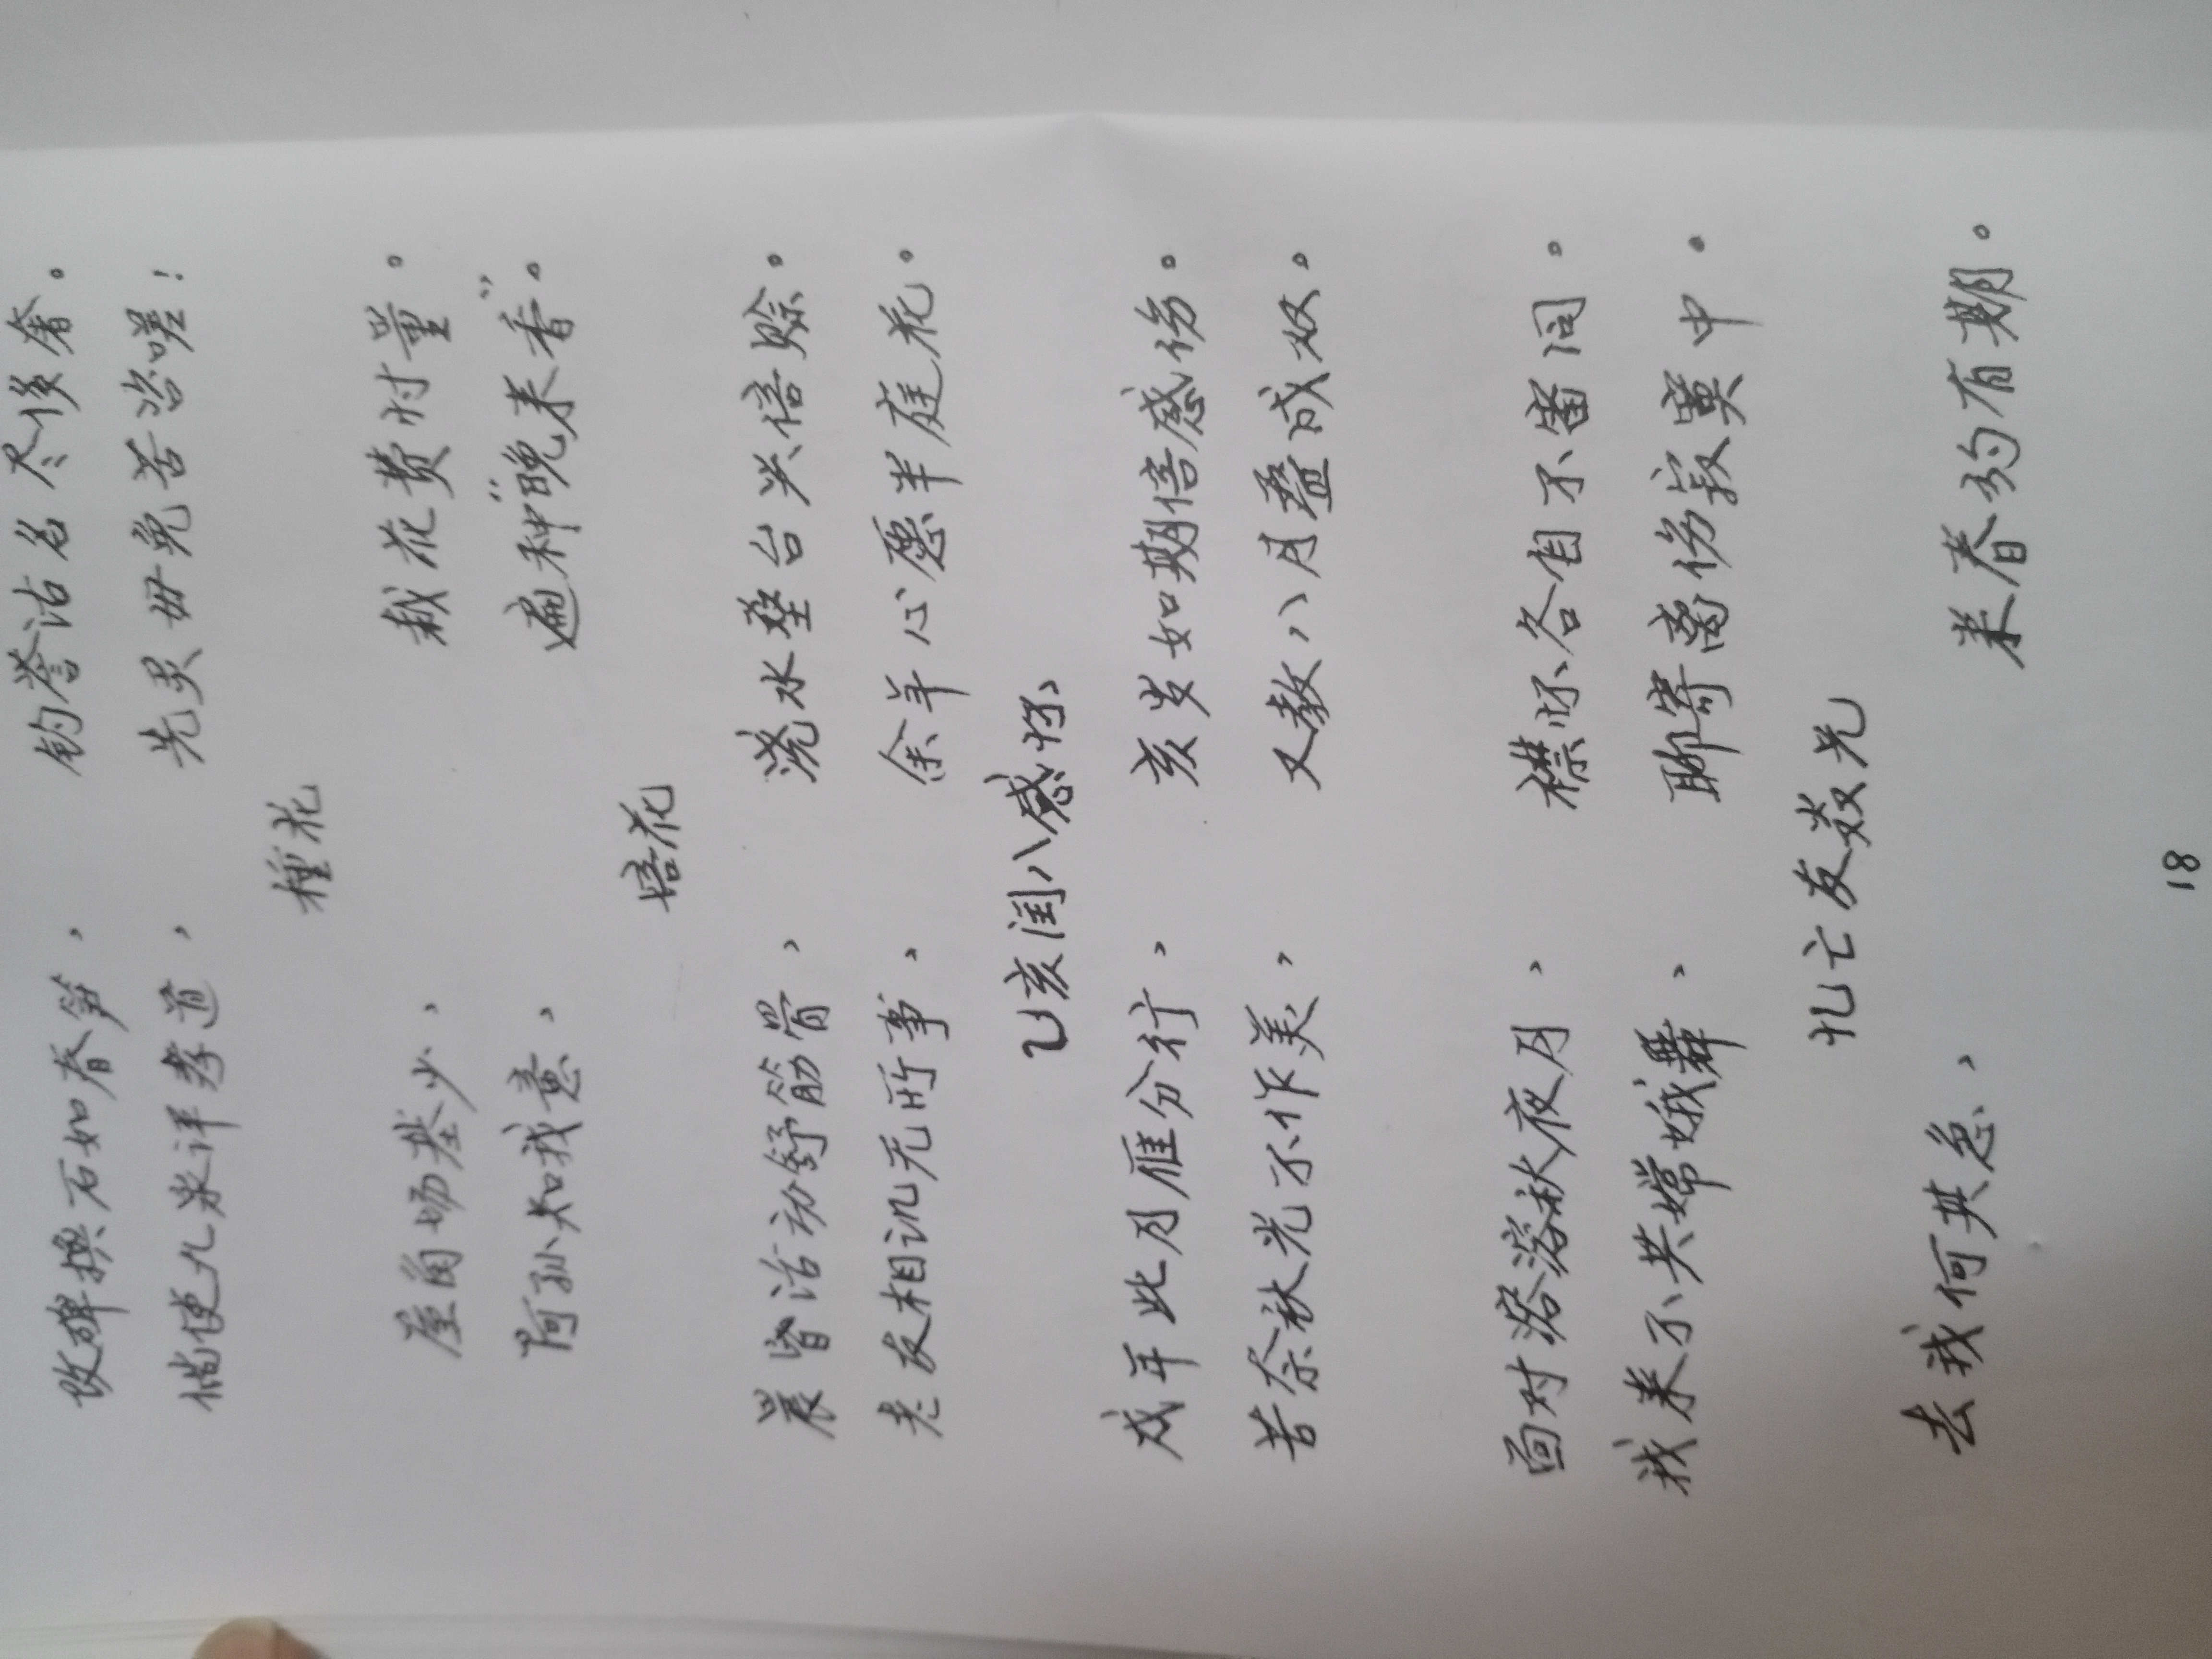 改碑换石如春笋， 钓誉沽名尽後奢。
倘使九泉详孝道， 先灵毋免苦咨嗟！
種花
屋角场基少， 栽花费忖量。
阿孙知我意， 遍种“晚来香”。
培花
晨昏活动舒筋骨， 浇水垒台兴倍赊。
老友相讥无所事， 余年心愿半庭花。
乙亥润八感怀
戍年此月雁分行， 亥岁如期倍感伤。
苦奈秋光不作美， 又教八月叠成双。
面对溶溶秋夜月， 襟怀各自不雷同。
我来不共嫦娥舞， 聊寄离伤寂寞中。
忆亡友焱光
去我何其急， 来春约有期。
18